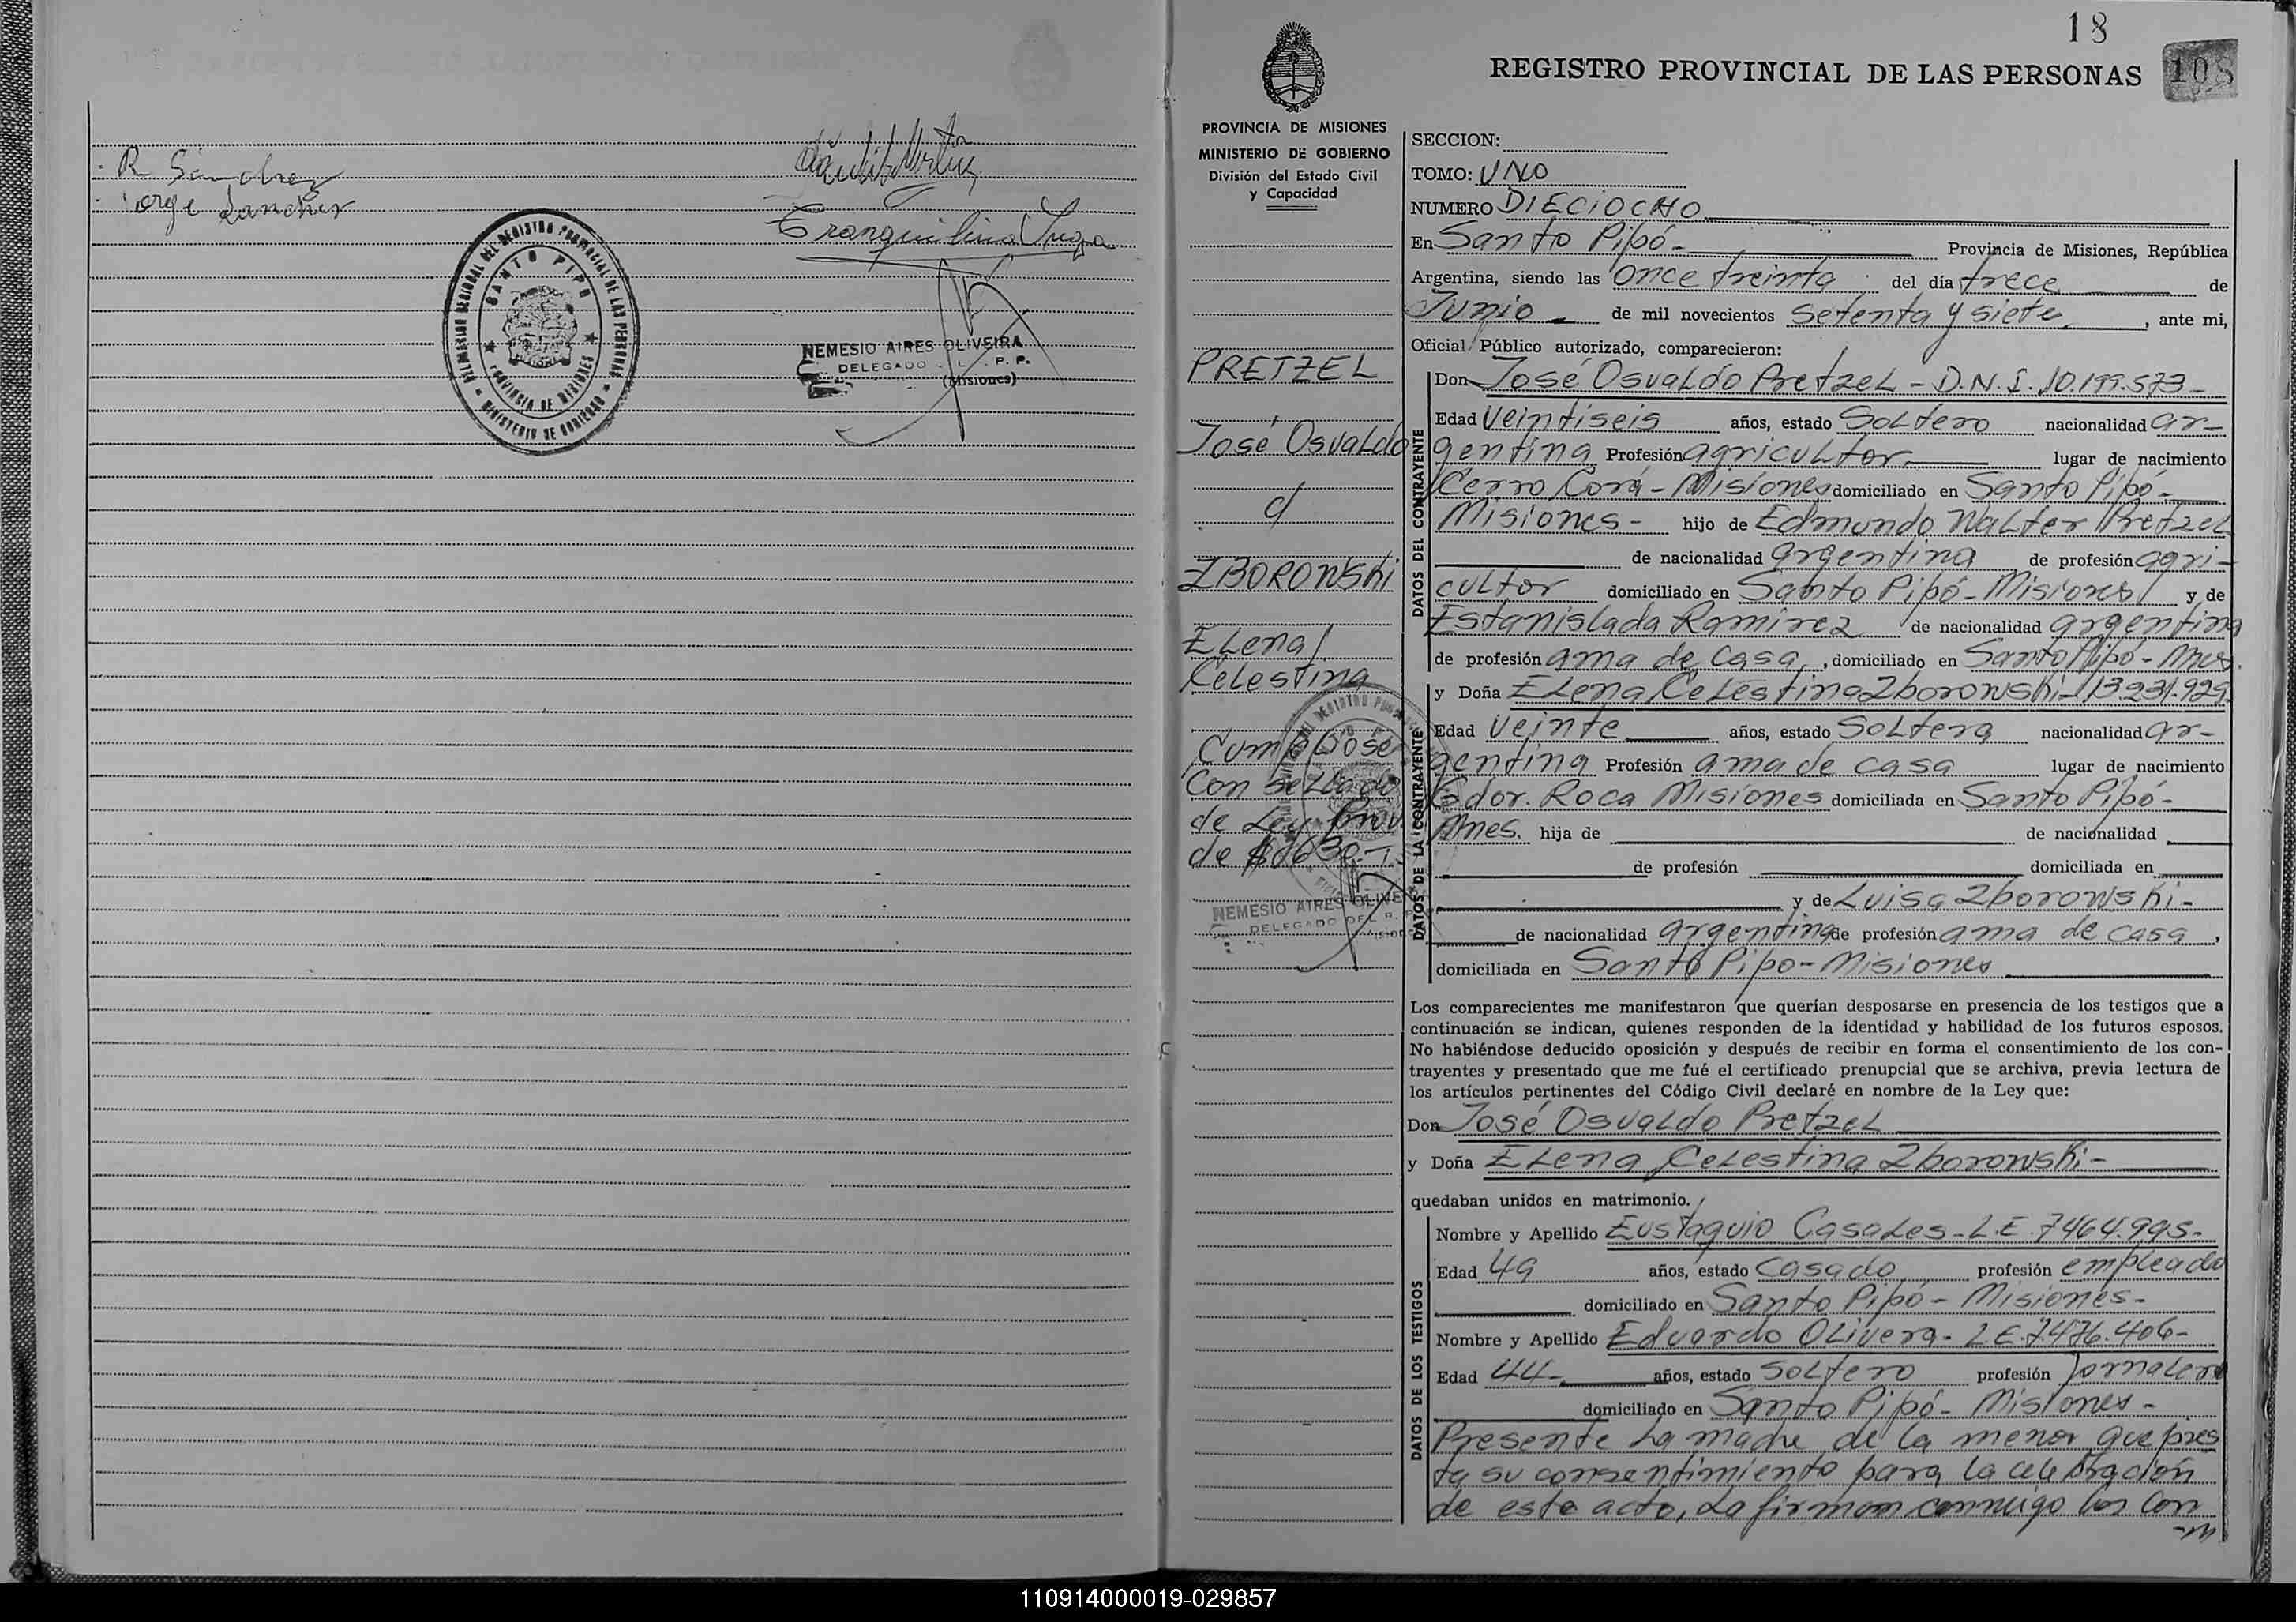 R Sánchez
Jorge Sanchez
Tranquilina Vega
DELEGACION REGIONAL DEL REGISTRO PROVINCIAL DE LAS PERSONAS
SANTO PIPO
PROVINCIA DE MISIONES
MINISTERIO DE GOBIERNO
NEMESIO AIRES OLIVEIRA
DELEGADO
P. P.
(Misiones)
18
REGISTRO PROVINCIAL DE LAS PERSONAS
108
PROVINCIA DE MISIONES
MINISTERIO DE GOBIERNO
División del Estado Civil
y Capacidad
PRETZEL
José Osvaldo
c/
ZBOROWSKi
ELena
Celestina
Cumplióse
Con sellado
de Ley Prov.
de $
NEMESIO AIRES OLIVE
DELEGADO DEL R.
SECCION:
TOMO: UNO
NUMERO DIECIOCHO
En Santo Pipó- Provincia de Misiones, República
Argentina, siendo las once treinta del día trece de
Junio - de mil novecientos setenta y siete , ante mi,
Oficial Público autorizado, comparecieron:
DATOS DEL CONTRAYENTE
Don José Osvaldo Pretzel - D.N.I. 10.199.573-
Edad Veintiseis años, estado Soltero nacionalidad ar-
gentina Profesión agricultor lugar de nacimiento
Cerro Corá - Misiones domiciliado en Santo Pipó-
Misiones - hijo de Edmundo Walter Pretzel
de nacionalidad argentina de profesión agri-
cultor domiciliado en Santo Pipó - Misiones y de
Estanislada Ramirez de nacionalidad argentina
de profesión ama de casa , domiciliado en Santo Pipó - Mnes.
DATOS DE LA CONTRAYENTE
y Doña Elena Celestina Zborowski - 13.231.929.
Edad Veinte años, estado Soltera nacionalidad ar-
gentina Profesión ama de casa lugar de nacimiento
Gdor. Roca Misiones domiciliada en Santo Pipó-
Mnes. hija de de nacionalidad
de profesión domiciliada en
y de Luisa Zborowski -
de nacionalidad argentina de profesión ama de casa ,
domiciliada en Santo Pipó - Misiones
Los comparecientes me manifestaron que querían desposarse en presencia de los testigos que a
continuación se indican, quienes responden de la identidad y habilidad de los futuros esposos.
No habiéndose deducido oposición y después de recibir en forma el consentimiento de los con-
trayentes y presentado que me fué el certificado prenupcial que se archiva, previa lectura de
los artículos pertinentes del Código Civil declaré en nombre de la Ley que:
Don José Osvaldo Pretzel
y Doña Elena Celestina Zborowski -
quedaban unidos en matrimonio.
DATOS DE LOS TESTIGOS
Nombre y Apellido Eustaquio Casales - L.E. 7464.995-
Edad 49 años, estado Casado profesión empleado
domiciliado en Santo Pipó - Misiones -
Nombre y Apellido Eduardo Olivera - L.E. 7.476.406-
Edad 44- años, estado Soltero profesión Jornalero
domiciliado en Santo Pipó - Misiones -
Presente la madre de la menor que pres
ta su consentimiento para la celebración
de este acto, la firman conmigo los con
110914000019-029857